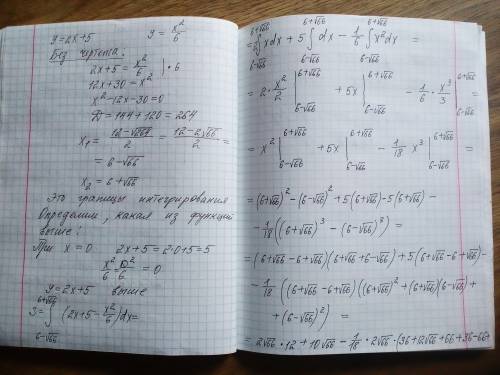 y=2x+5 y = x²/6
Без чертежа:
2x+5 = x²/6 | • 6
12x+30 = x²
x²-12x-30=0
Д = 144+120 = 264
x₁ = (12-√264)/2 = (12-2√66)/2 =
= 6-√66
x₂ = 6+√66
Это границы интегрирования
Определим, какая из функций
выше:
При x=0 2x+5=2·0+5=5
x²/6 = 0²/6 = 0
y=2x+5 выше
S = ∫_{6-√66}^{6+√66} (2x+5-x²/6)dx=
= 2∫_{6-√66}^{6+√66} xdx + 5∫_{6-√66}^{6+√66} dx - 1/6 ∫_{6-√66}^{6+√66} x²dx =
= 2 • x²/2 |_{6-√66}^{6+√66} + 5x |_{6-√66}^{6+√66} - 1/6 • x³/3 |_{6-√66}^{6+√66} =
= x² |_{6-√66}^{6+√66} + 5x |_{6-√66}^{6+√66} - 1/18 x³ |_{6-√66}^{6+√66} =
= (6+√66)² - (6-√66)² + 5(6+√66) - 5(6-√66) -
- 1/18((6+√66)³ - (6-√66)³) =
= (6+√66 - 6+√66)(6+√66+6-√66) + 5(6+√66-6+√66) -
- 1/18 ((6+√66-6+√66)((6+√66)² + (6+√66)(6-√66) +
+ (6-√66)²) =
= 2√66 • 12 + 10√66 - 1/18 • 2√66 • (36+12√66+66+36-66+